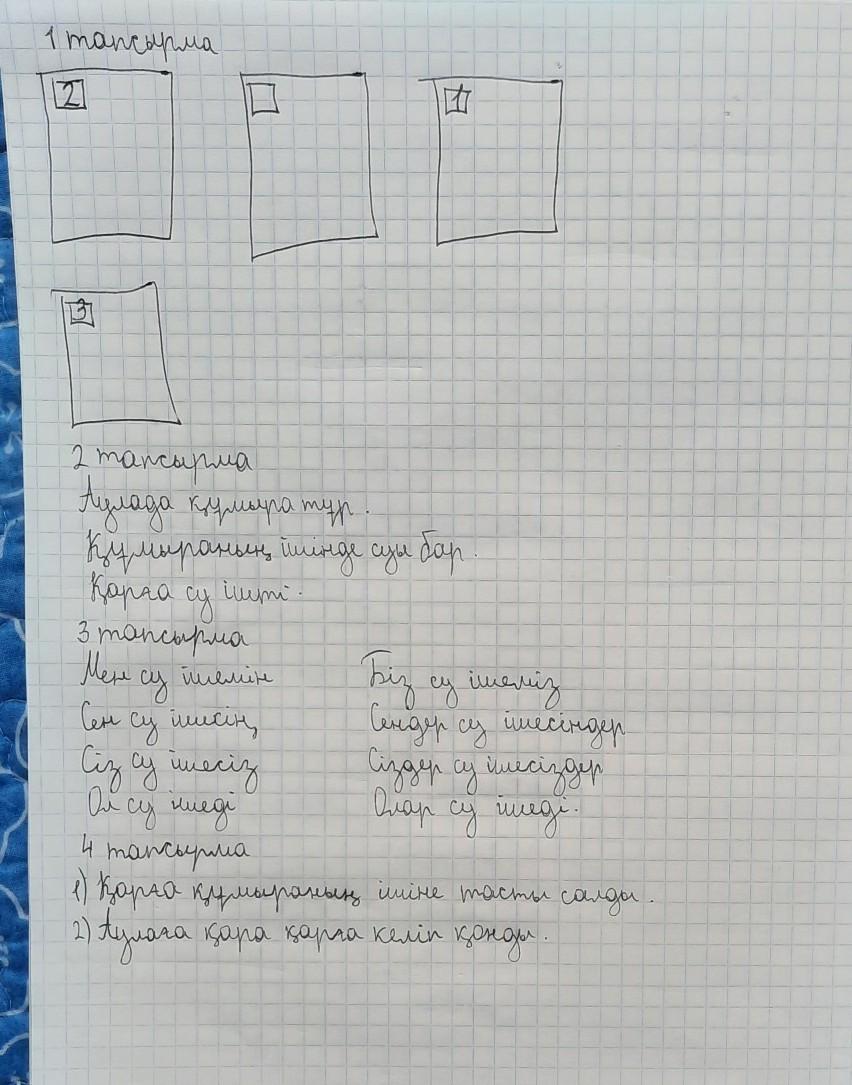 1 тапсырма
2 1
3
2 тапсырма
Аулада құмыра тұр.
Құмыраның ішінде суы бар.
Қарға су ішті.
3 тапсырма
Мен су ішемін Біз су ішеміз
Сен су ішесің Сендер су ішесіңдер
Сіз су ішесіз Сіздер су ішесіздер
Ол су ішеді Олар су ішеді.
4 тапсырма
1) Қарға құмыраның ішіне тасты салды.
2) Аулаға қара қарға келіп қонды.